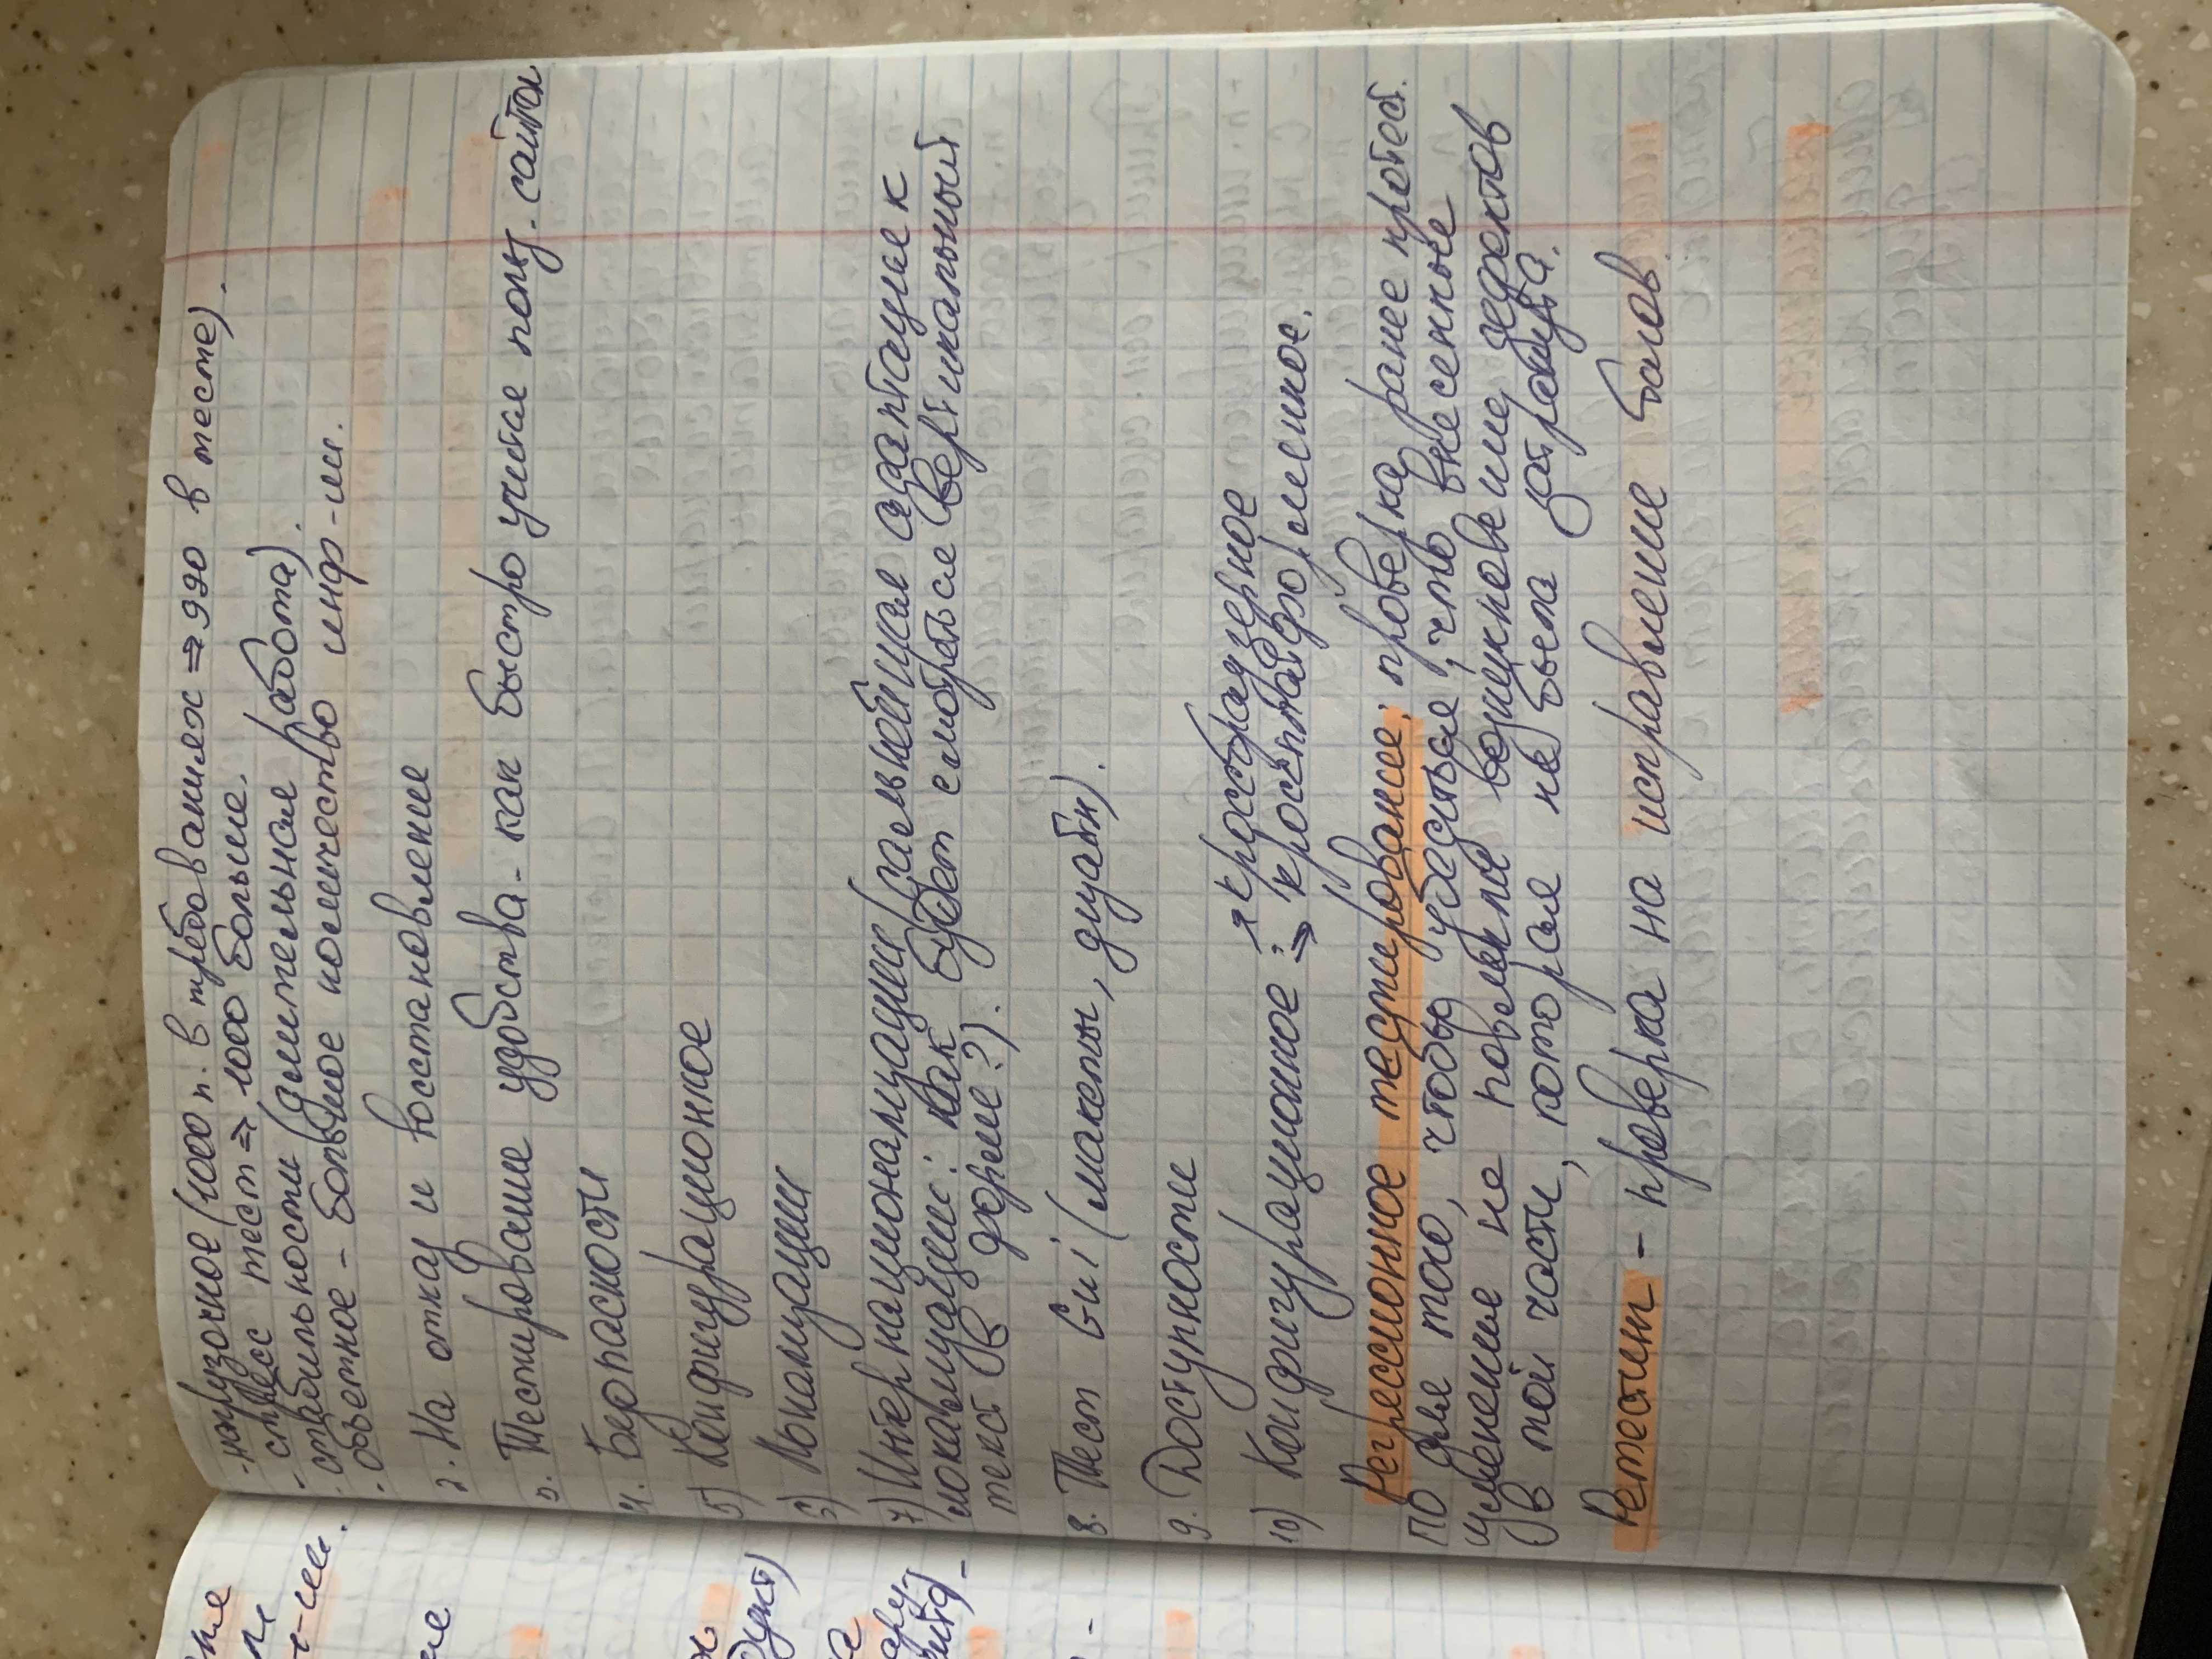 - нагрузочное (1000 п. в требованиях ⇒ 990 в тесте).
- стресс тест ⇒ 1000 больше.
- стабильности (длительная работа).
- объемное - большое количество инф-ии.
2. На отказ и восстановление
3. Тестирование удобства - как быстро учится польз. сайтом
4. Безопасности
5) Конфигурационное
6) Локализации
7) Интернационализации (дальнейшая адаптация к
локализации: как будет смотреться вертикальный
текст в форме?).
8. Тест Gui (макеты, дизайн).
9. Доступности
10) Конфигурационное: → кроссбраузерное
→ кроссплатформенное.
Регрессионное тестирование: проверка ранее протест.
ПО для того, чтобы убедиться, что внесенные
изменения не повлекли возникновение дефектов
в той части, которая не была затронута.
Ретестинг - проверка на исправление багов.